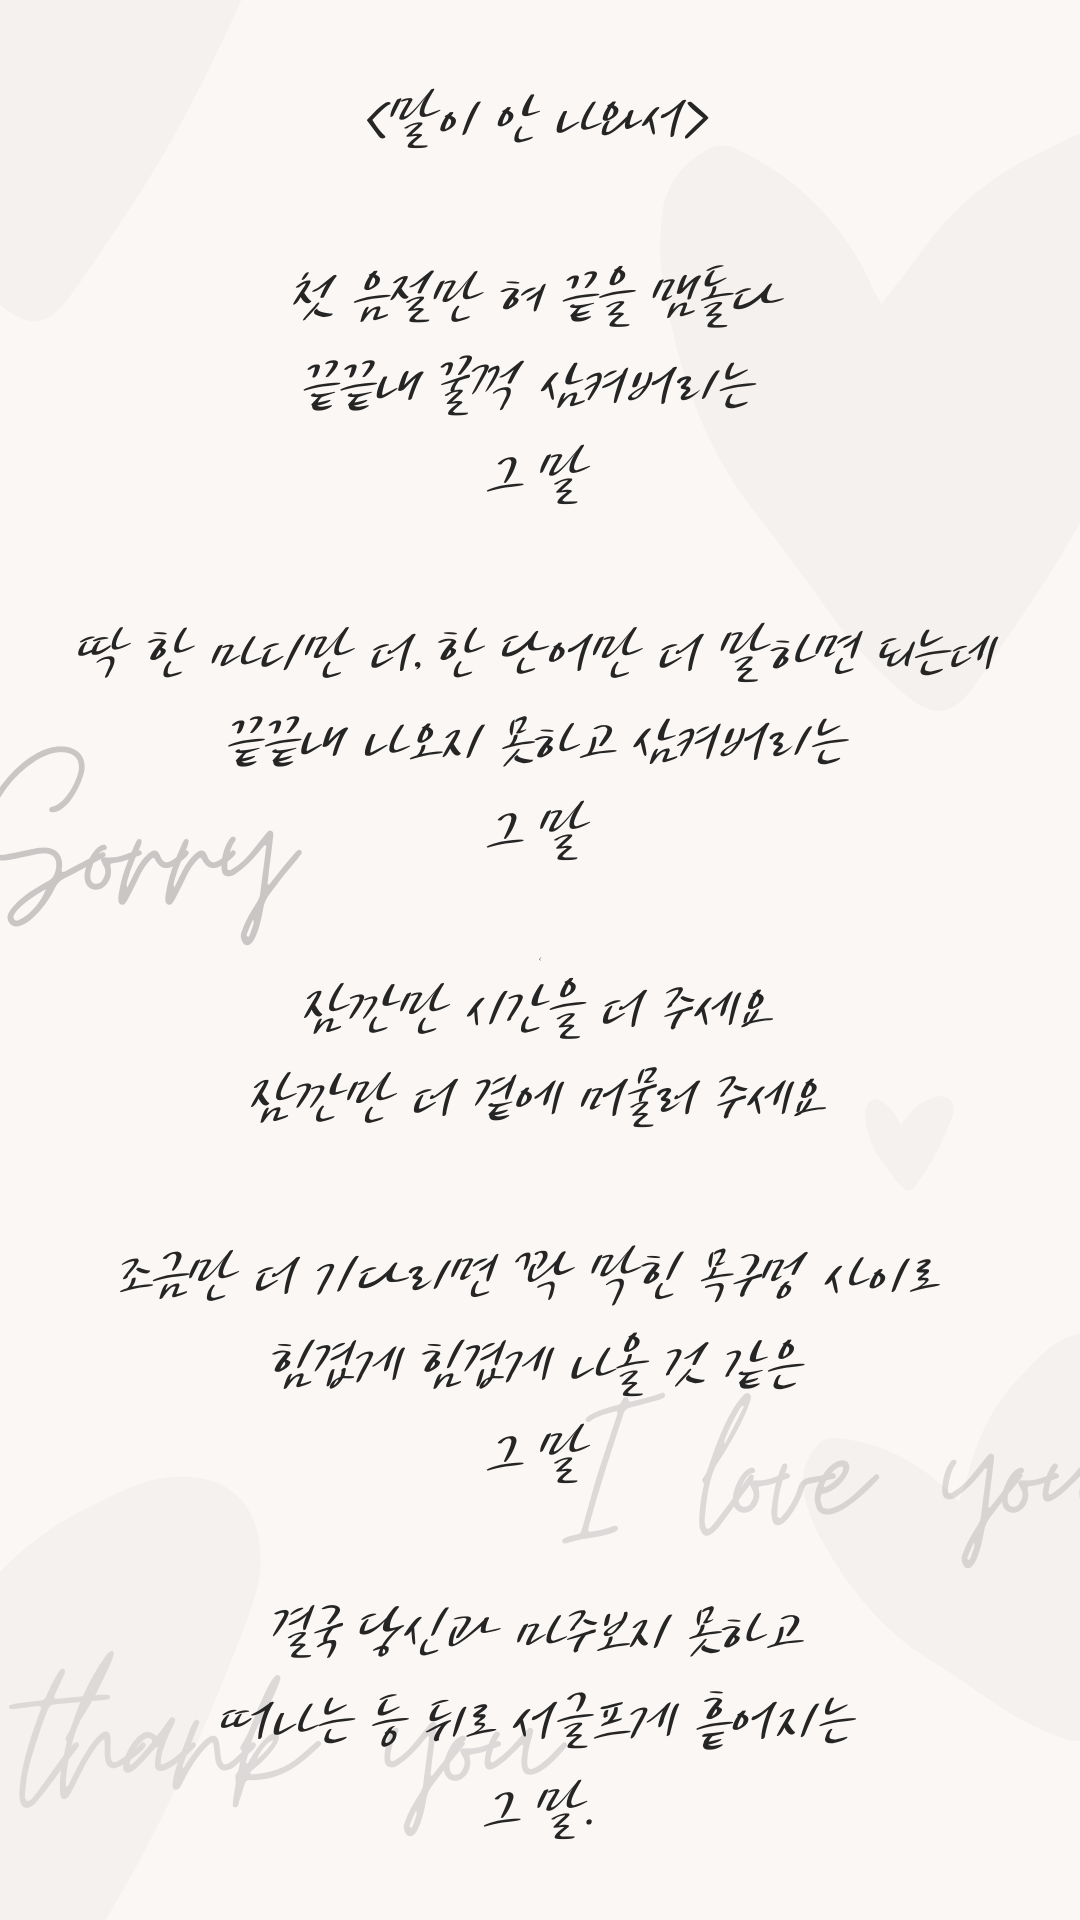 <말이 안 나와서>
첫 음절만 혀 끝을 맴돌다
끝끝내 꿀꺽 삼켜버리는
그 말
딱 한 마디만 더, 한 단어만 더 말하면 되는데
끝끝내 나오지 못하고 삼켜버리는
그 말
Sorry
잠깐만 시간을 더 주세요
잠깐만 더 곁에 머물러 주세요
조금만 더 기다리면 꽉 막힌 목구멍 사이로
힘겹게 힘겹게 나올 것 같은
그 말
I love you
결국 당신과 마주보지 못하고
떠나는 등 뒤로 서글프게 흩어지는
thank you
그 말.